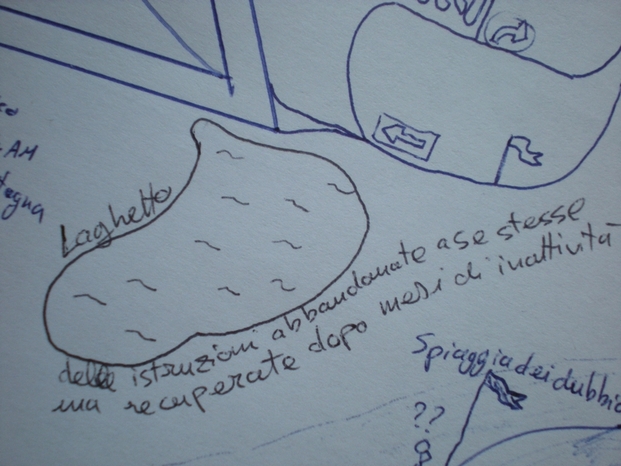 AM
Laghetto
delle istruzioni abbandonate a se stesse
ma recuperate dopo mesi di inattività
Spiaggia dei dubbi
??